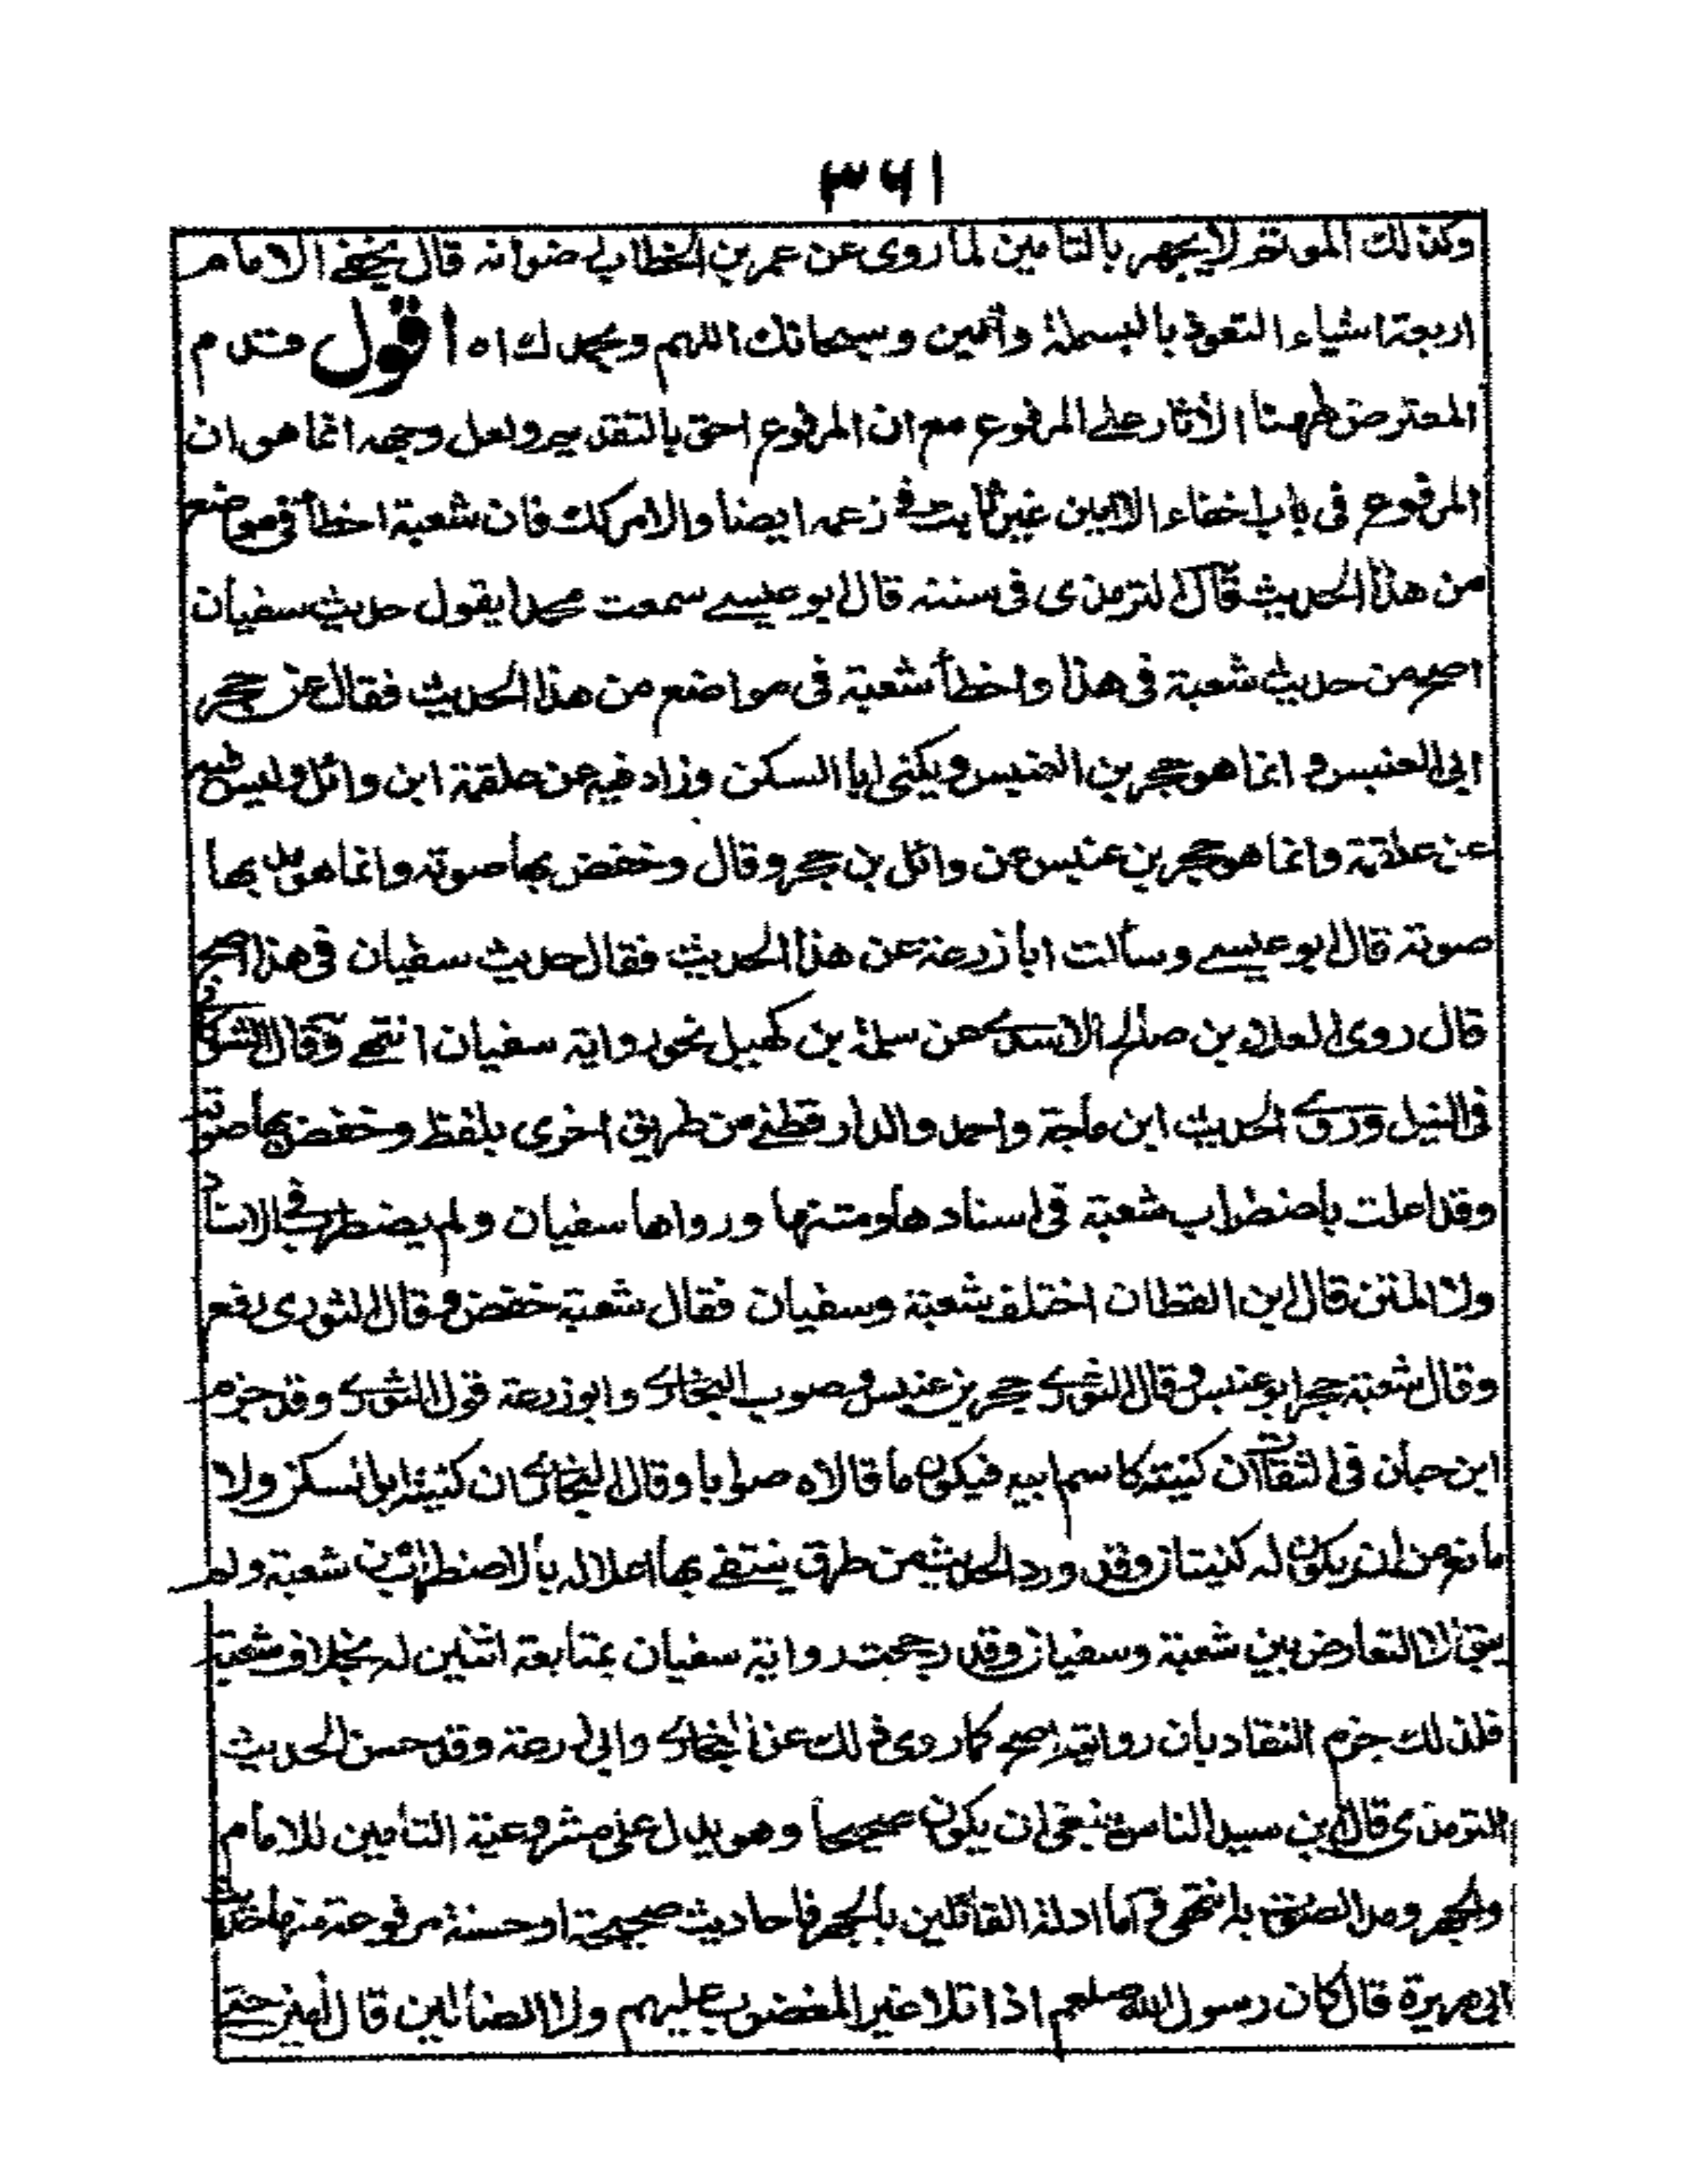 ٣٦١
وكذلك الموتم لا يجهر بالتامين لما روى عن عمر بن الخطاب رض انه قال يخفى الامام
اربعة اشياء التعوذ بالبسملة وآمين وسبحانك اللهم وبحمدك اه اقول قدم
المعترض ههنا الأثار على المرفوع مع ان المرفوع احق بالتقديم ولعل وجهه انما هو ان
المرفوع فى باب اخفاء الامين غير ثابت فى زعمه ايضا والامر كك فان شعبة اخطأ فى مواضع
من هذا الحديث قال الترمذى فى سننه قال ابو عيسى سمعت محمدا يقول حديث سفيان
اصح من حديث شعبة فى هذا واخطأ شعبة فى مواضع من هذا الحديث فقال عن حجر
ابى العنبس و انما هو حجر بن العنبس ويكنى ابا السكن وزاد فيه عن علقمة ابن وائل وليس فيه
عن علقمة وانما هو حجر بن عنبس عن وائل بن حجر وقال وخفض بها صوته وانما هو مد بها
صوته قال ابو عيسى وسألت ابا زرعة عن هذا الحديث فقال حديث سفيان فى هذا اصح
قال روى العلاء بن صالح الاسدى عن سلمة بن كهيل نحو رواية سفيان انتهى وقال الشوكانى
فى النيل وروى الحديث ابن ماجة واحمد والدارقطنى من طريق اخرى بلفظ وخفض بها صوته
وقد اعلت بأضطراب شعبة فى اسنادها ومتنها ورواها سفيان ولم يضطرب فى الاسناد
ولا المتن قال ابن القطان اختلف شعبة وسفيان فقال شعبة خفض وقال الثورى رفع
وقال شعبة حجر ابو عنبس وقال الثورى حجر بن عنبس وصوب البخارى وابو زرعة قول الثورى وقد جزم
ابن حبان فى الثقات ان كنيته كاسم ابيه فيكون ما قالاه صوابا وقال البخارى ان كنيته ابو السكن ولا
مانع من ان يكون له كنيتان وقد ورد الحديث من طرق ينتفى بها اعلاله بالاضطراب من شعبة ولم
يبق الا التعارض بين شعبة وسفيان وقد رجحت رواية سفيان بمتابعة اثنين له بخلاف شعبة
فلذلك جزم النقاد بان روايته اصح كما روى ذلك عن البخارى وابى زرعة وقد حسن الحديث
الترمذى قال ابن سيد الناس ينبغى ان يكون صحيحا وهو يدل على مشروعية التأمين للامام
والجهر ومد الصوت به انتهى و اما ادلة القائلين بالجهر فاحاديث صحيحة او حسنة مرفوعة منها حديث
ابى هريرة قال كان رسول الله صلعم اذا تلا غير المغضوب عليهم ولا الضالين قال آمين حتى